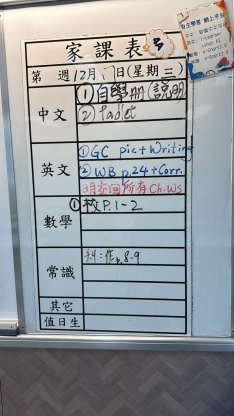 家課表
第 週12月17日(星期三)
中文
①自學冊(說明
②Padlet
英文
①GC pic+Writing
②WB p.24+Corr.
數學
①校P.1-2
常識
科:作p.8-9
其它
值日生